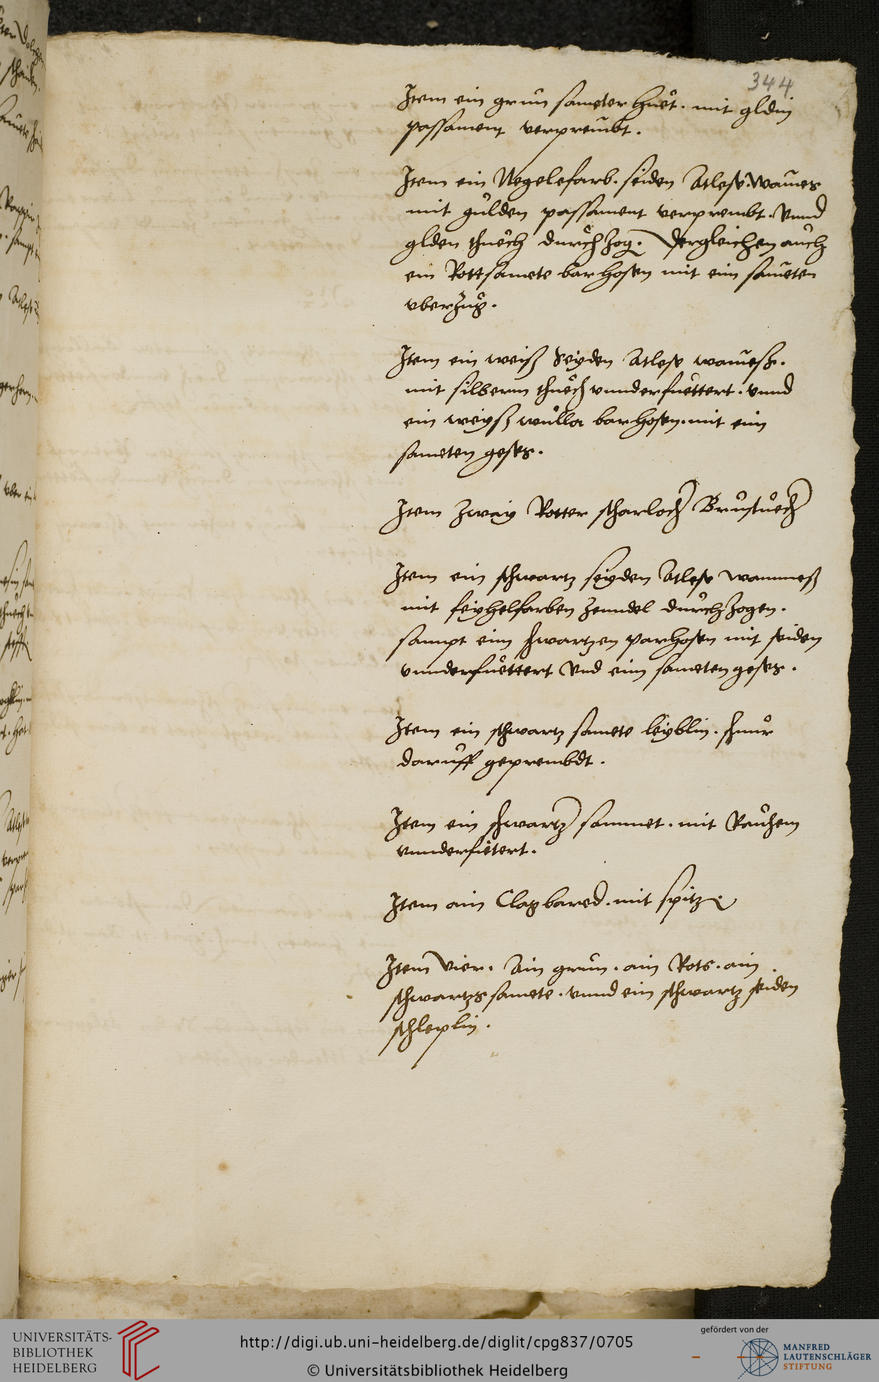 344
Item ein grun sameter huet. mit gldin
passament verprembt.
Item ein Negelefarb. seiden Atlesz. wames
mit gulden passament verprembt. Vnnd
glden thuech durchzog. Dergleichen auch
ein Rott samete bar hosen mit ein sameten
vberzug.
Item ein weiß Seyden Atlesz wamesß.
mit silberin thuech vnnderfuettert. vnnd
ein weyß wulla bar hosen. mit eim
sameten geses.
Item zway Rotter scharloch Brustuech
Item ein schwartz seyden Atlesz wammeß
mit feyhelfarben zenndel durchzogen.
sampt eim schwartzen par hosen mit seiden
vnnderfuettert vnd eim sameten geses.
Item ein schwartz samete leyblin. schnur
daruff geprembdt.
Item ein schwartz sammet. mit Rauhem
vnnderfuetert.
Item ain Clapbared. mit spitz
Item Vier. Ain grun. ain Rots. ain
schwartzs samete. vnnd ein schwartz seiden
schleplin.
UNIVERSITÄTS-
BIBLIOTHEK
HEIDELBERG
http://digi.ub.uni-heidelberg.de/diglit/cpg837/0705
© Universitätsbibliothek Heidelberg
gefördert von der
MANFRED
LAUTENSCHLÄGER
STIFTUNG